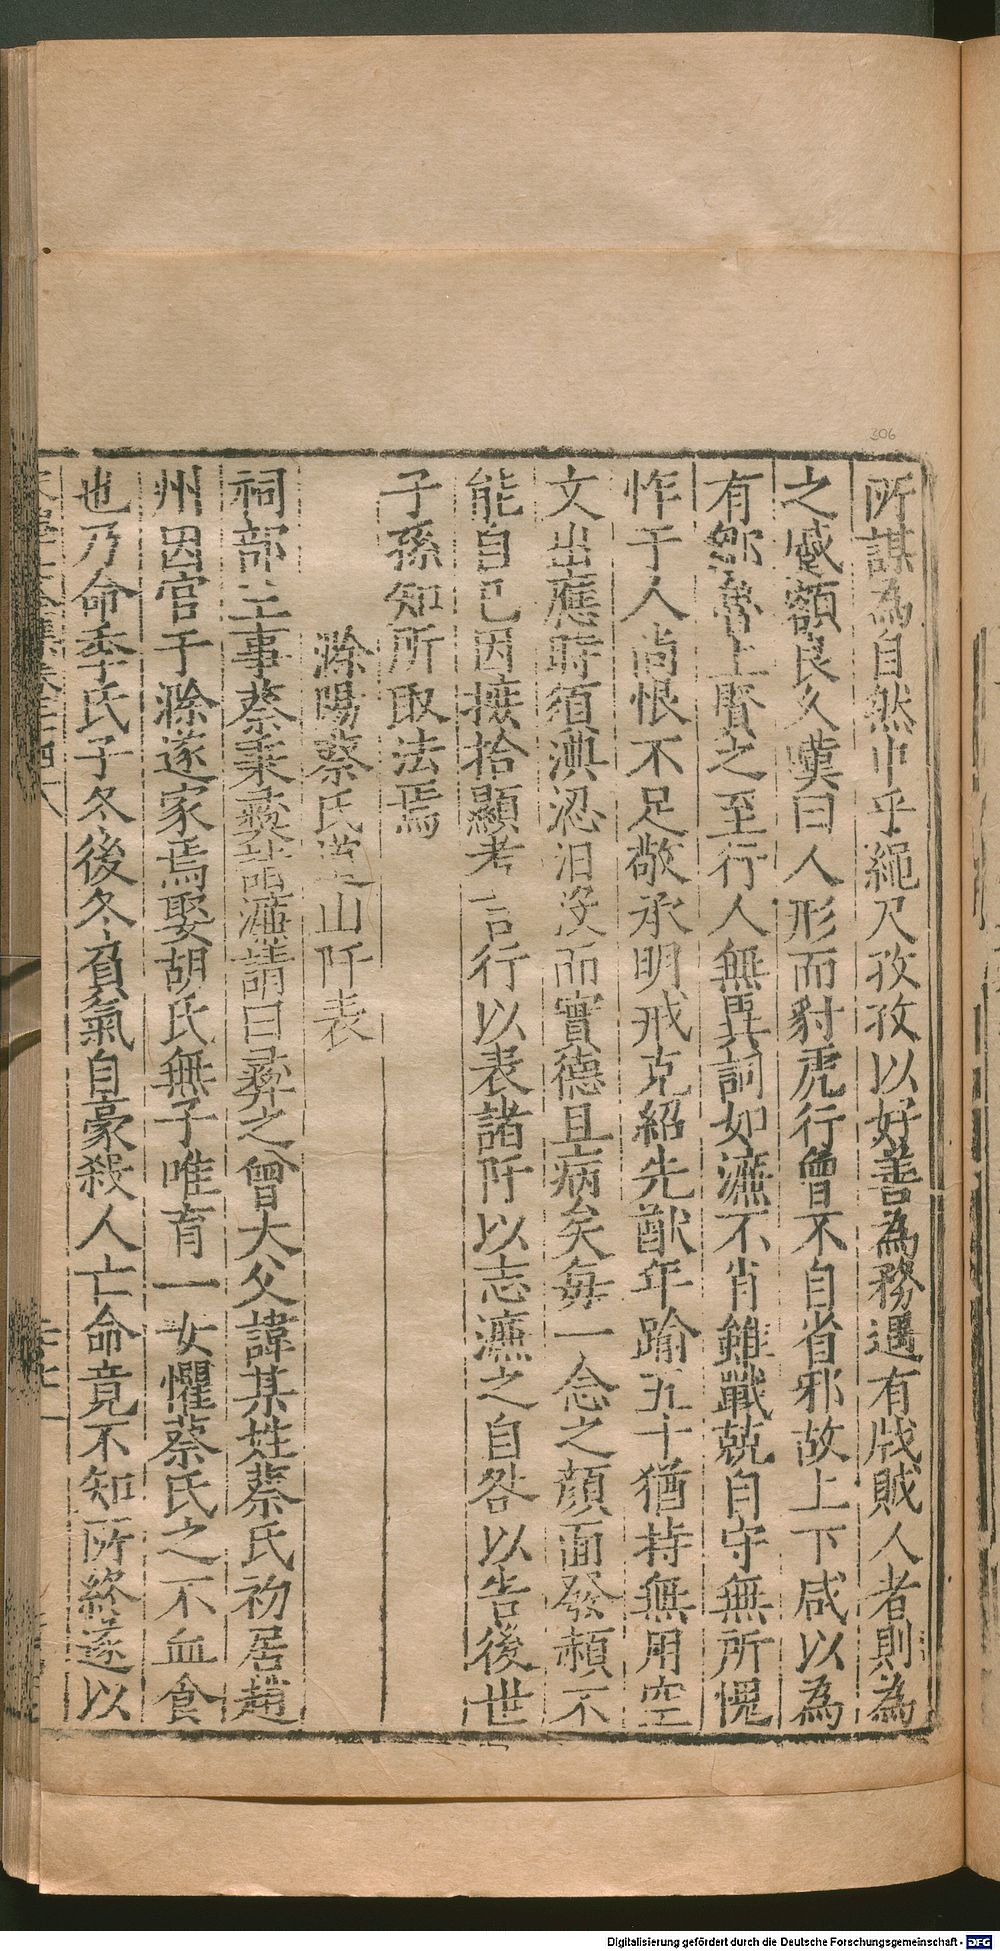 所謀為自然中乎繩尺孜孜以好善為務遇有戕賊人者則為
之慼額良久嘆曰人形而豺虎行曾不自省邪故上下咸以為
有鄒魯上賢之至行人無異詞如濂不肖雖戰兢自守無所愧
怍于人尚恨不足敬承明戒克紹先猷年踰五十猶持無用空
文出應時須淟涊汨沒而實德且病矣每一念之顏面發赬不
能自已因摭拾顯考言行以表諸阡以志濂之自咎以告後世
子孫知所取法焉
滁陽蔡氏山阡表
祠部主事蔡秉彞詣濂請曰彞之曾大父諱某姓蔡氏初居趙
州因官于滁遂家焉娶胡氏無子唯育一女懼蔡氏之不血食
也乃命李氏子冬後冬負氣自豪殺人亡命竟不知所終遂以
306
Digitalisierung gefördert durch die Deutsche Forschungsgemeinschaft - DFG